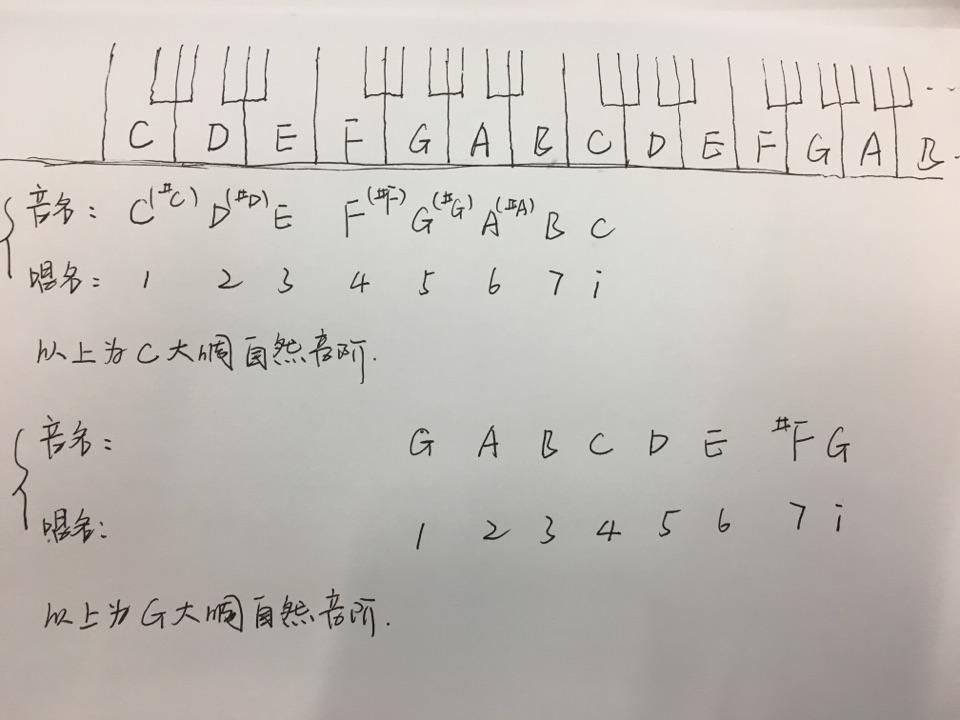 C D E F G A B C D E F G A B ...
音名: C(#C) D(#D) E F(#F) G(#G) A(#A) B C
唱名: 1 2 3 4 5 6 7 i
以上为C大调自然音阶.
音名: G A B C D E #F G
唱名: 1 2 3 4 5 6 7 i
以上为G大调自然音阶.